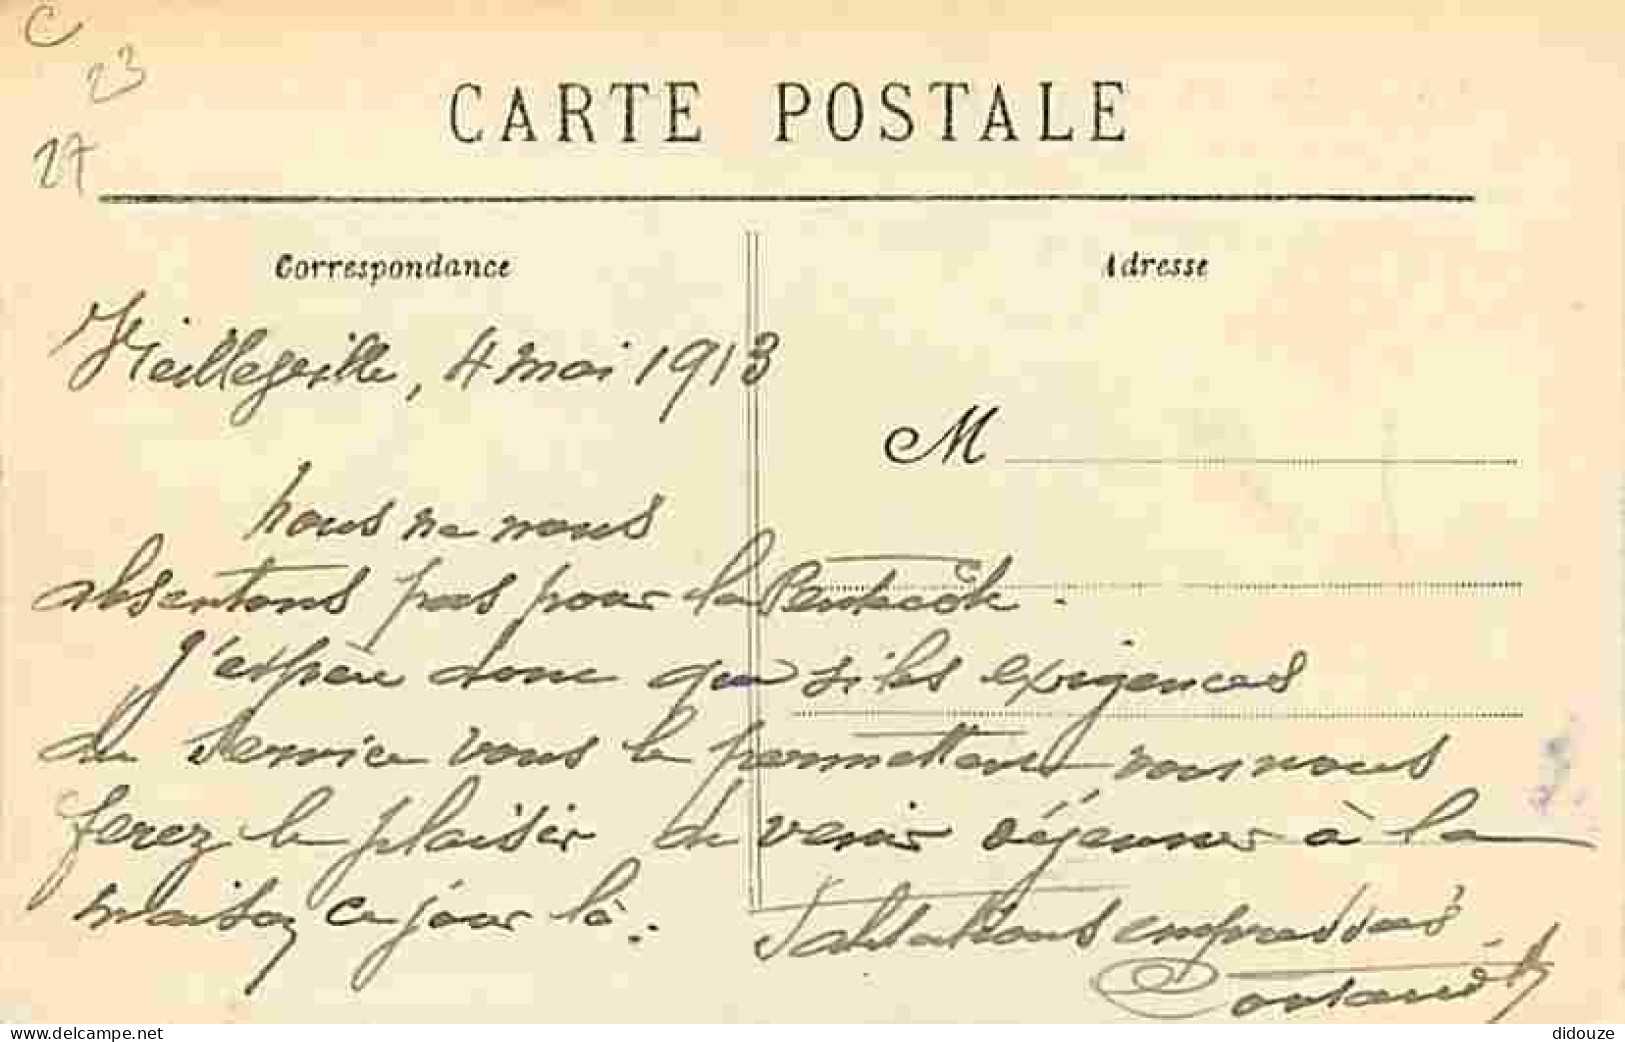 C
23
27
CARTE POSTALE
Correspondance
Adresse
Vielleville, 4 mai 1913
M
Nous ne nous
absentons pas pour la Pentecôte.
J'espère donc que si les exigences
du service vous le permettent vous nous
ferez le plaisir de venir déjeuner à la
maison ce jour là.
Salutations empressées
www.delcampe.net
didouze